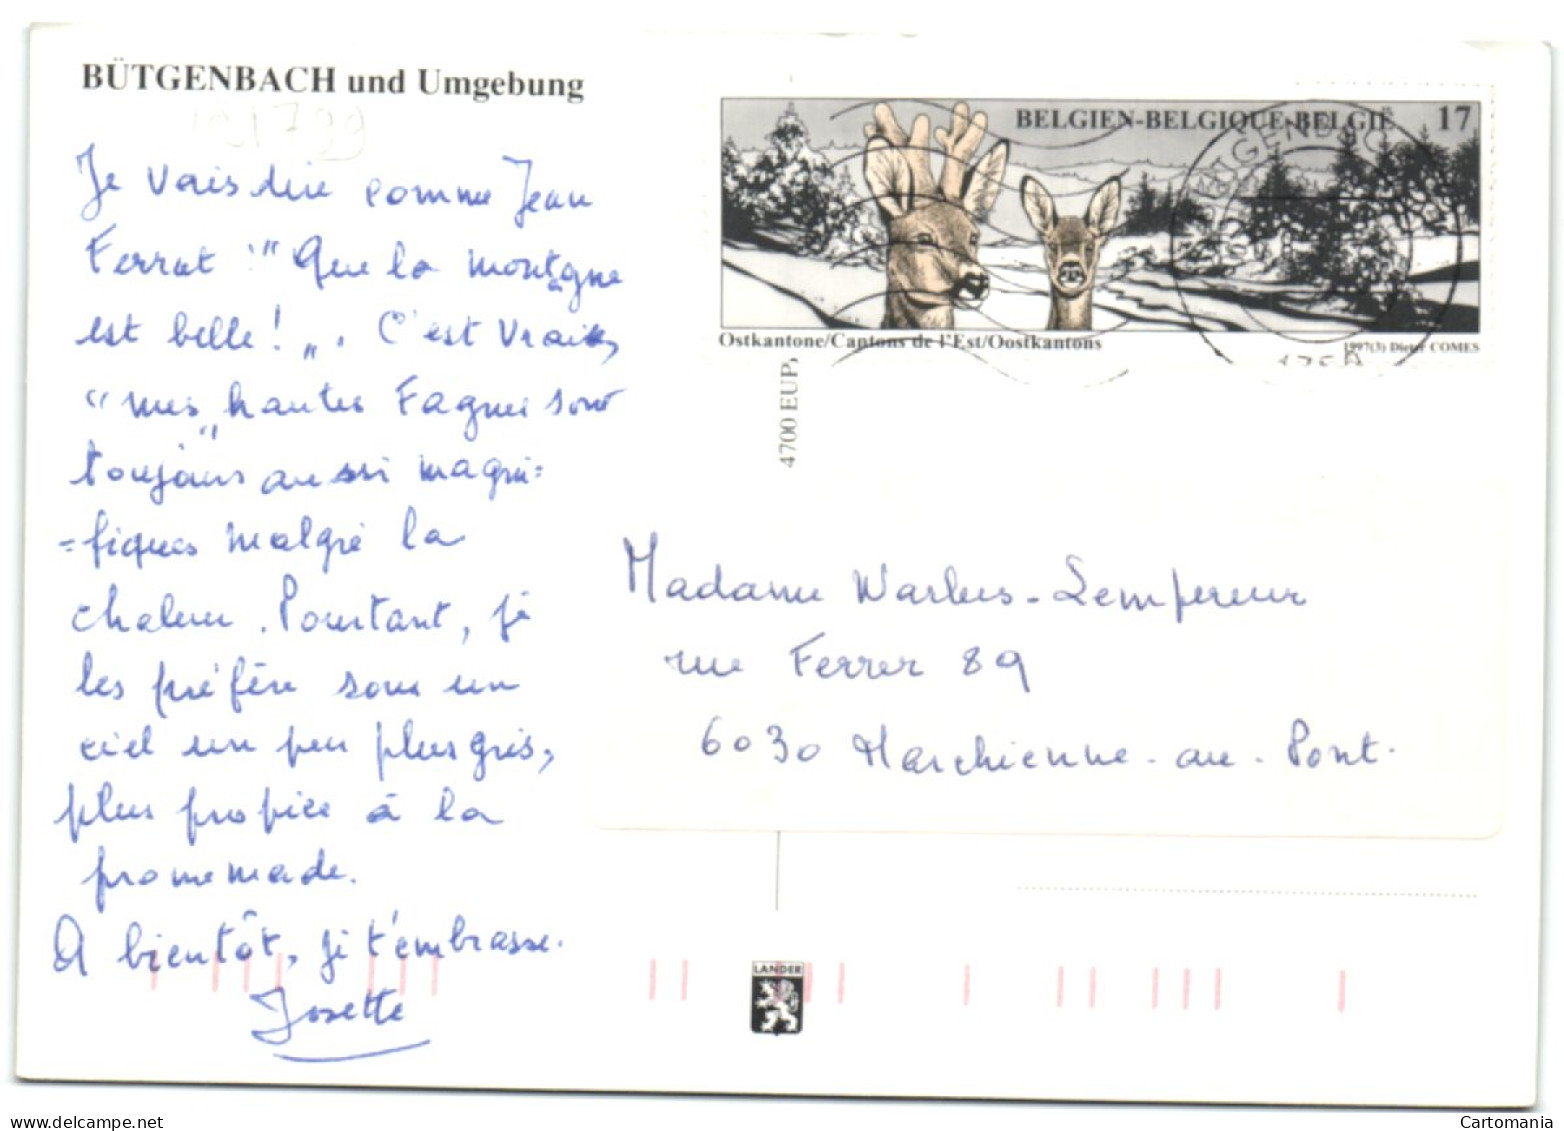 BÜTGENBACH und Umgebung
Je vais dire comme Jean
Ferrat : "Que la montagne
est belle ! ". C'est vrai,
"mes hautes Fagnes" sont
toujours aussi magni=
=fiques malgré la
chaleur. Pourtant, je
les préfère sous un
ciel un peu plus gris,
plus propice à la
promenade.
A bientôt, je t'embrasse.
Josette
BELGIEN-BELGIQUE-BELGIË 17
Ostkantone/Cantons de l'Est/Oostkantons
1997(3) Dieter COMES
BÜTGENBACH
4700 EUP
Madame Warlus-Lempereur
rue Ferrer 89
6030 Marchienne-au-Pont.
LANDER
https://www.delcampe.net
Cartomania